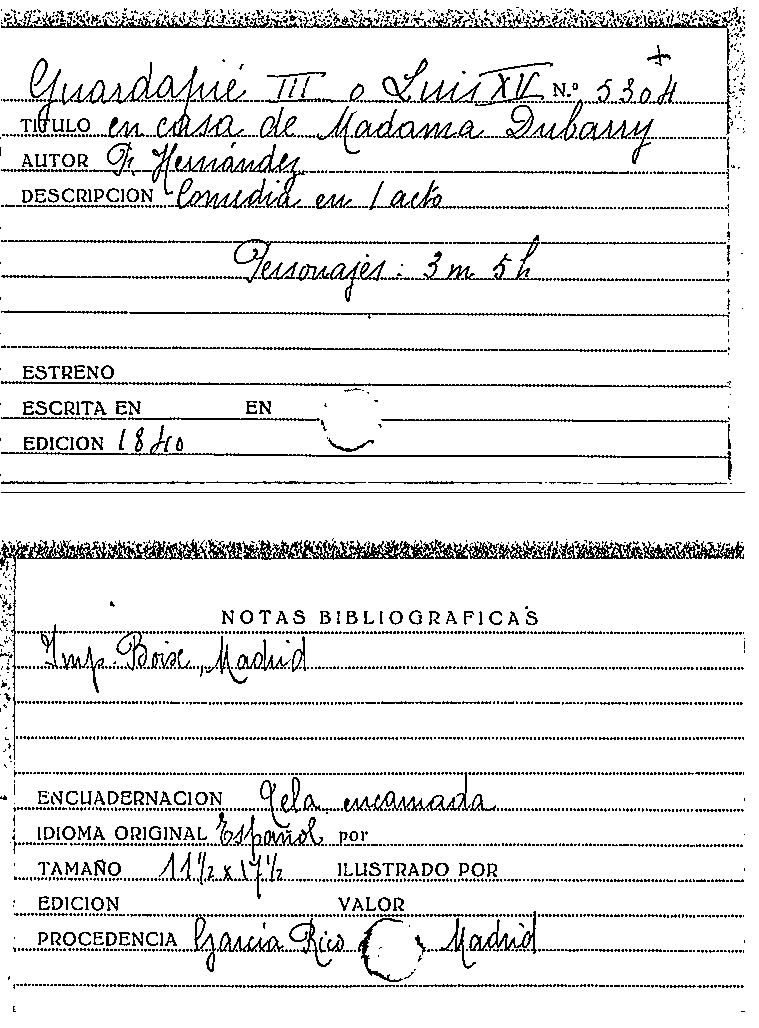 Guardapié III o Luis XV N.º 5304
TITULO en casa de Madama Dubarry
AUTOR P. Hernández
DESCRIPCION Comedia en 1 acto
Personajes : 3 m 5 h
ESTRENO
ESCRITA EN EN
EDICION 1840
NOTAS BIBLIOGRAFICAS
Imp. Boix, Madrid
ENCUADERNACION Tela encarnada
IDIOMA ORIGINAL Español por
TAMAÑO 11 1/2 x 17 1/2 ILUSTRADO POR
EDICION VALOR
PROCEDENCIA García Rico Madrid